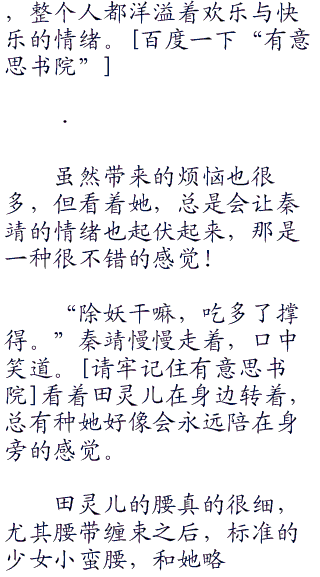 ，整个人都洋溢着欢乐与快
乐的情绪。[百度一下“有意
思书院”]
．
虽然带来的烦恼也很
多，但看着她，总是会让秦
靖的情绪也起伏起来，那是
一种很不错的感觉！
“除妖干嘛，吃多了撑
得。”秦靖慢慢走着，口中
笑道。[请牢记住有意思书
院]看着田灵儿在身边转着，
总有种她好像会永远陪在身
旁的感觉。
田灵儿的腰真的很细，
尤其腰带缠束之后，标准的
少女小蛮腰，和她略